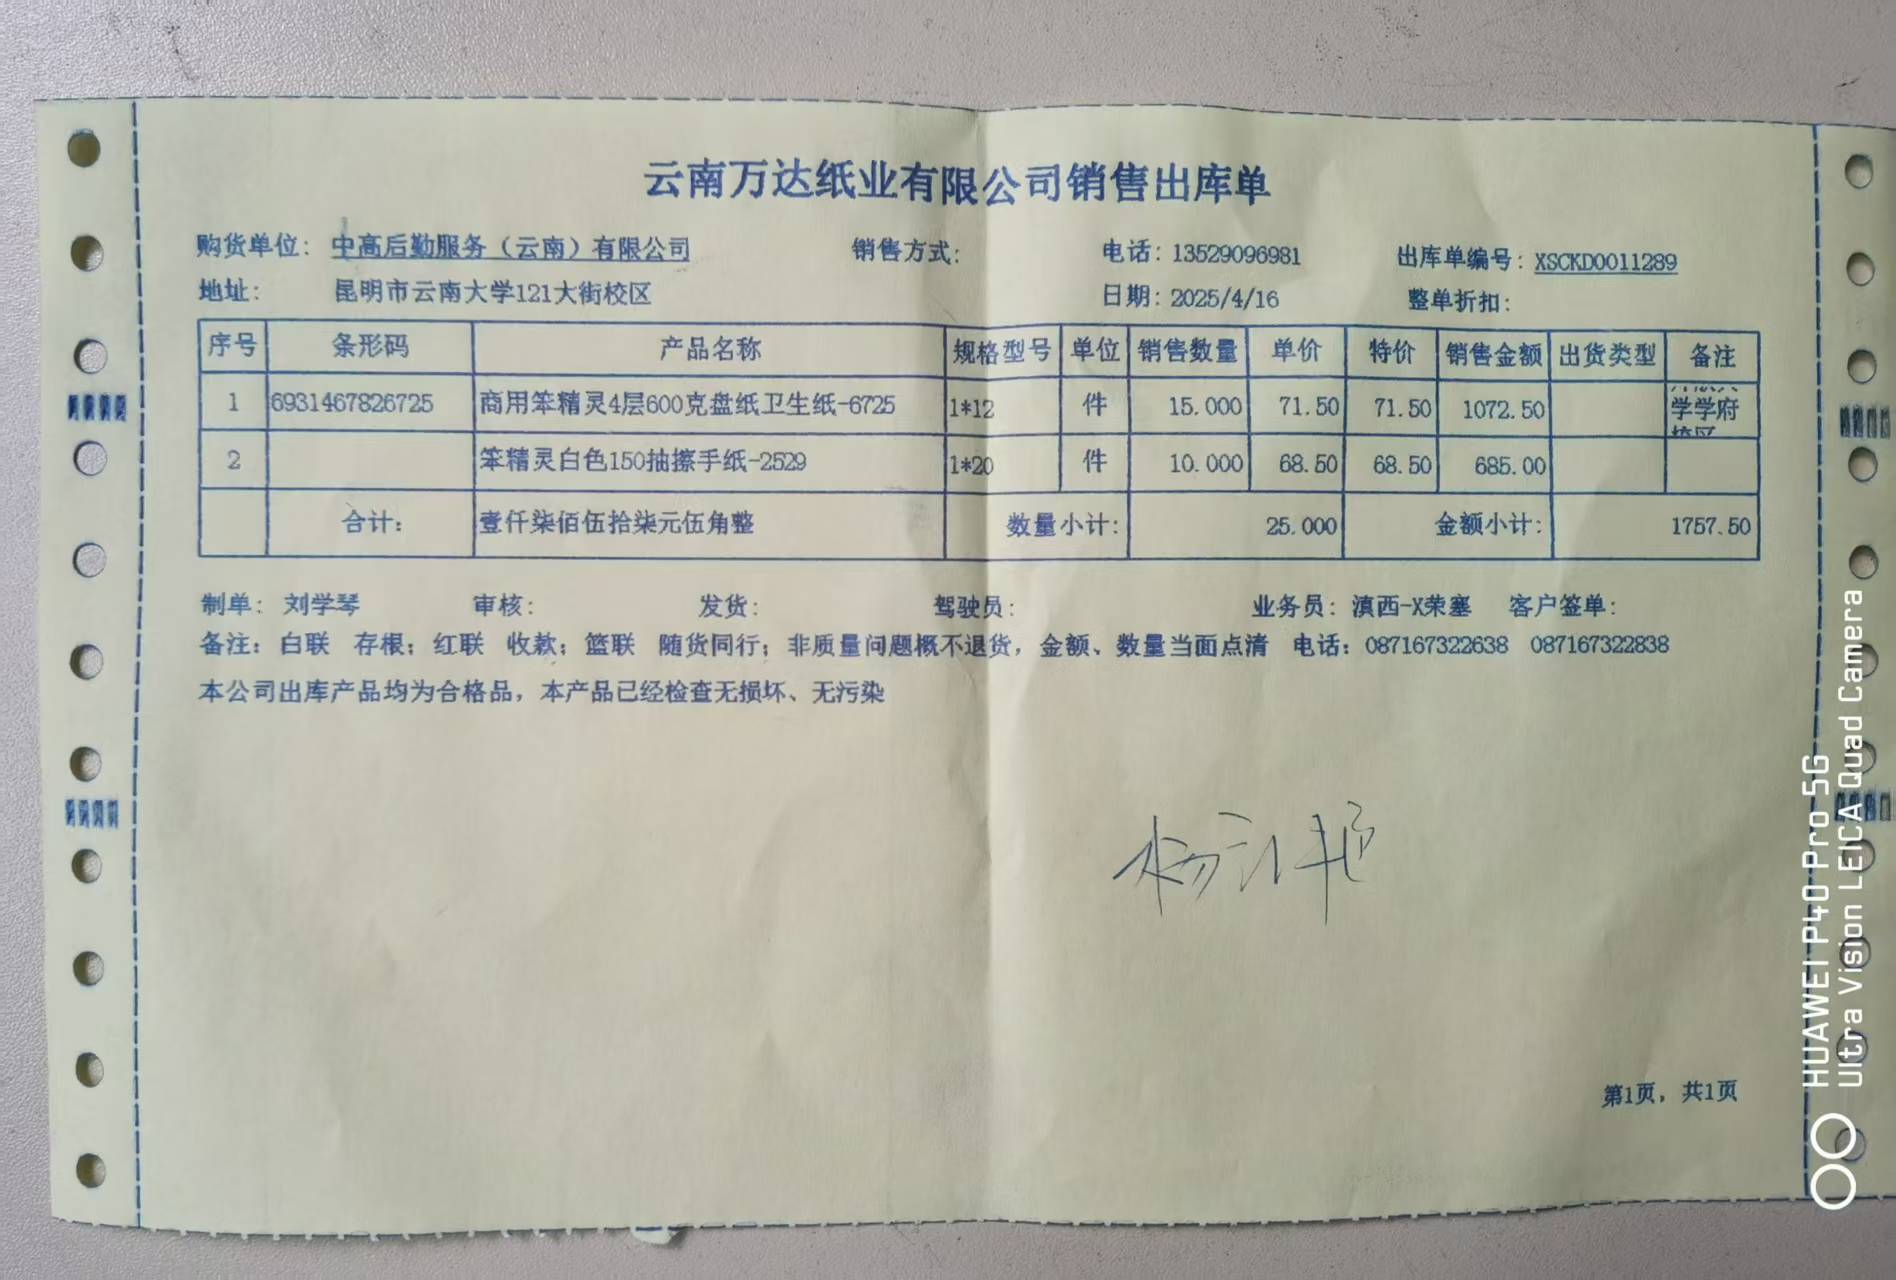 云南万达纸业有限公司销售出库单
购货单位: 中高后勤服务（云南）有限公司 销售方式: 电话: 13529096981 出库单编号: XSCKD0011289
地址: 昆明市云南大学121大街校区 日期: 2025/4/16 整单折扣:
序号 条形码 产品名称 规格型号 单位 销售数量 单价 特价 销售金额 出货类型 备注
1 6931467826725 商用笨精灵4层600克盘纸卫生纸-6725 1*12 件 15.000 71.50 71.50 1072.50 学学府
2 笨精灵白色150抽擦手纸-2529 1*20 件 10.000 68.50 68.50 685.00
合计: 壹仟柒佰伍拾柒元伍角整 数量小计: 25.000 金额小计: 1757.50
制单: 刘学琴 审核: 发货: 驾驶员: 业务员: 滇西-X荣塞 客户签单:
备注: 白联 存根; 红联 收款; 篮联 随货同行; 非质量问题概不退货, 金额、数量当面点清 电话: 087167322638 087167322838
本公司出库产品均为合格品, 本产品已经检查无损坏、无污染
第1页, 共1页
HUAWEI P40 Pro 5G
Ultra Vision LEICA Quad Camera